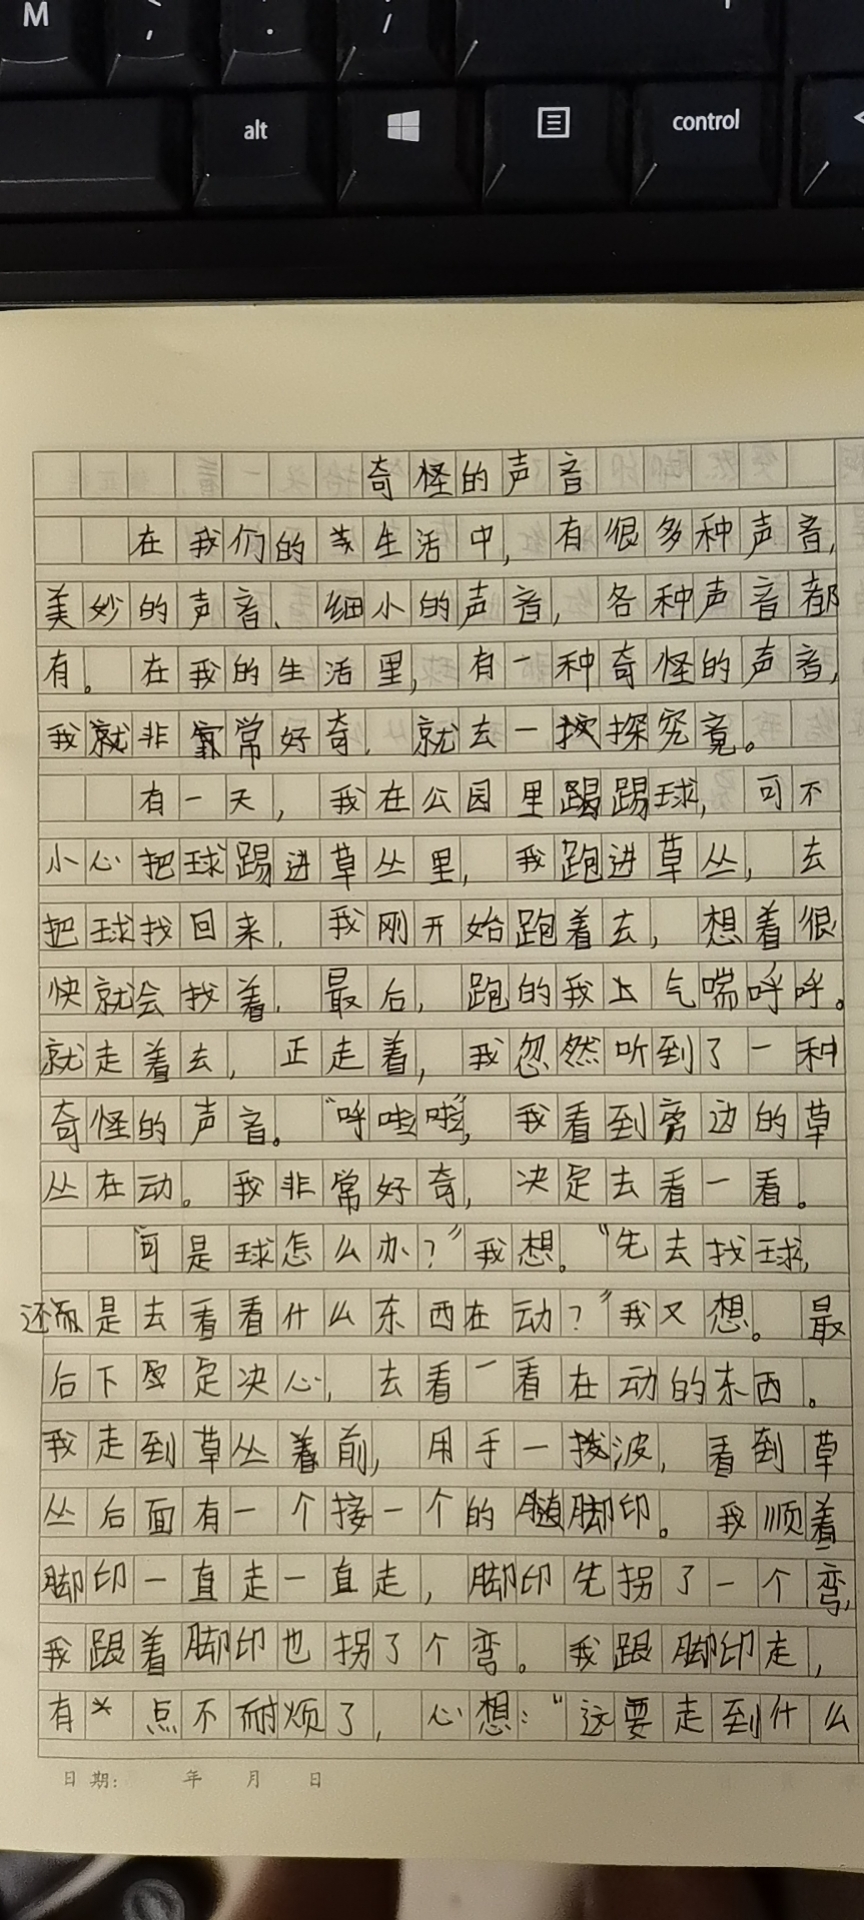 M < , . /
alt control <
奇怪的声音
在我们的生活中，有很多种声音，
美妙的声音、细小的声音，各种声音都
有。在我的生活里，有一种奇怪的声音，
我就非常好奇，就去一探究竟。
有一天，我在公园里踢球，可不
小心把球踢进草丛里，我跑进草丛，去
把球找回来，我刚开始跑着去，想着很
快就会找着，最后，跑的我上气喘呼呼。
就走着去，正走着，我忽然听到了一种
奇怪的声音。“呼啦啦”，我看到旁边的草
丛在动。我非常好奇，决定去看一看。
“可是球怎么办？”我想。“先去找球，
还是去看看什么东西在动？”我又想。最
后下定决心，去看一看在动的东西。
我走到草丛前，用手一波，看到草
丛后面有一个接一个的脚印。我顺着
脚印一直走一直走，脚印先拐了一个弯，
我跟着脚印也拐了个弯。我跟脚印走，
有点不耐烦了，心想：“这要走到什么
日期： 年 月 日